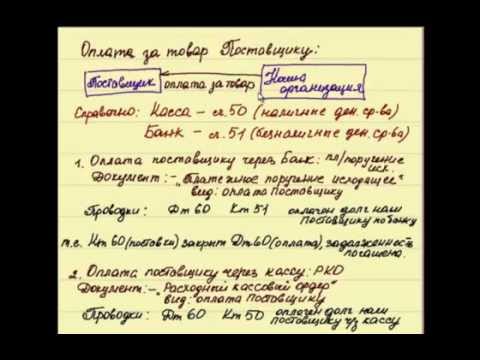 Оплата за товар Поставщику:
Поставщик оплата за товар Наша организация
Справочно: Касса – сч. 50 (наличные ден. ср-ва)
Банк – сч. 51 (безналичные ден. ср-ва)
1. Оплата поставщику через Банк: пл/поручение исх.
Документ: – „Платежное поручение исходящее"
вид: оплата поставщику
Проводки: Дт 60 Кт 51 оплачен долг наш поставщику по банку
т.е. Кт 60 (поставки) закрыт Дт 60 (оплата), задолженность погашена.
2. Оплата поставщику через кассу: РКО
Документ: – „Расходный кассовый ордер"
вид: оплата поставщику
Проводки: Дт 60 Кт 50 оплачен долг наш поставщику ч/з кассу